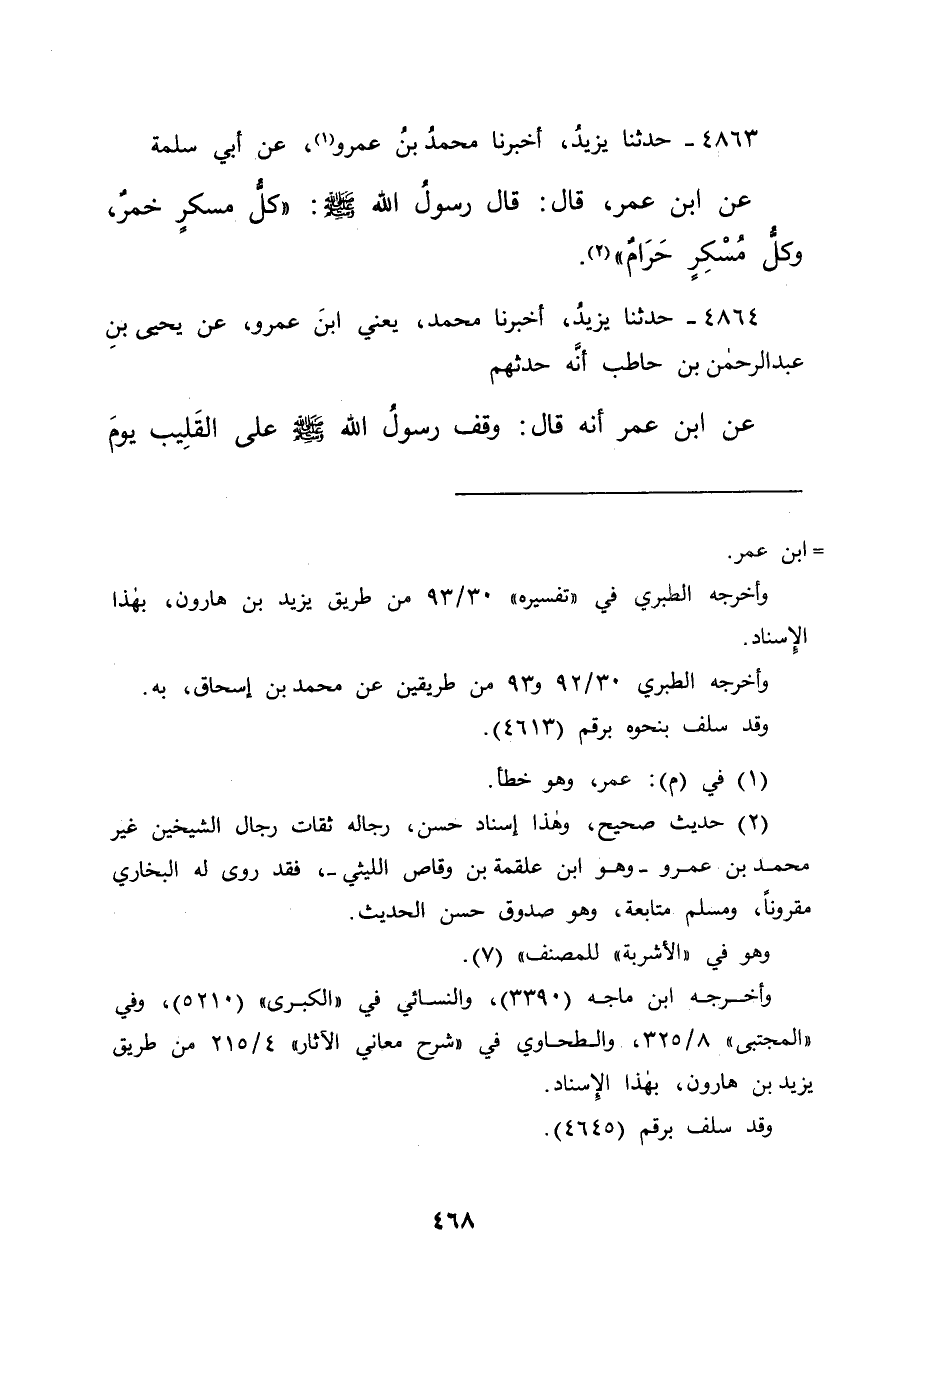 ٤٨٦٣ ـ حدثنا يزيدُ، أخبرنا محمدُ بنُ عمرو(١)، عن أبي سلمة
عن ابن عمر، قال: قال رسولُ الله ﷺ: «كلُّ مسكرٍ خمرٌ،
وكلُّ مُسْكِرٍ حَرَامٌ»(٢).
٤٨٦٤ ـ حدثنا يزيدُ، أخبرنا محمد، يعني ابنَ عمرو، عن يحيى بنِ
عبدالرحمٰن بن حاطب أنَّه حدثهم
عن ابن عمر أنه قال: وقف رسولُ الله ﷺ على القَلِيب يومَ
= ابن عمر.
وأخرجه الطبري في «تفسيره» ٩٣/٣٠ من طريق يزيد بن هارون، بهٰذا
الإِسناد.
وأخرجه الطبري ٩٢/٣٠ و٩٣ من طريقين عن محمد بن إسحاق، به.
وقد سلف بنحوه برقم (٤٦١٣).
(١) في (م): عمر، وهو خطأ.
(٢) حديث صحيح، وهٰذا إسناد حسن، رجاله ثقات رجال الشيخين غير
محمد بن عمرو ـ وهو ابن علقمة بن وقاص الليثي ـ، فقد روى له البخاري
مقروناً، ومسلم متابعة، وهو صدوق حسن الحديث.
وهو في «الأشربة» للمصنف» (٧).
وأخرجه ابن ماجه (٣٣٩٠)، والنسائي في «الكبرى» (٥٢١٠)، وفي
«المجتبى» ٣٢٥/٨، والطحاوي في «شرح معاني الآثار» ٢١٥/٤ من طريق
يزيد بن هارون، بهٰذا الإِسناد.
وقد سلف برقم (٤٦٤٥).
٤٦٨